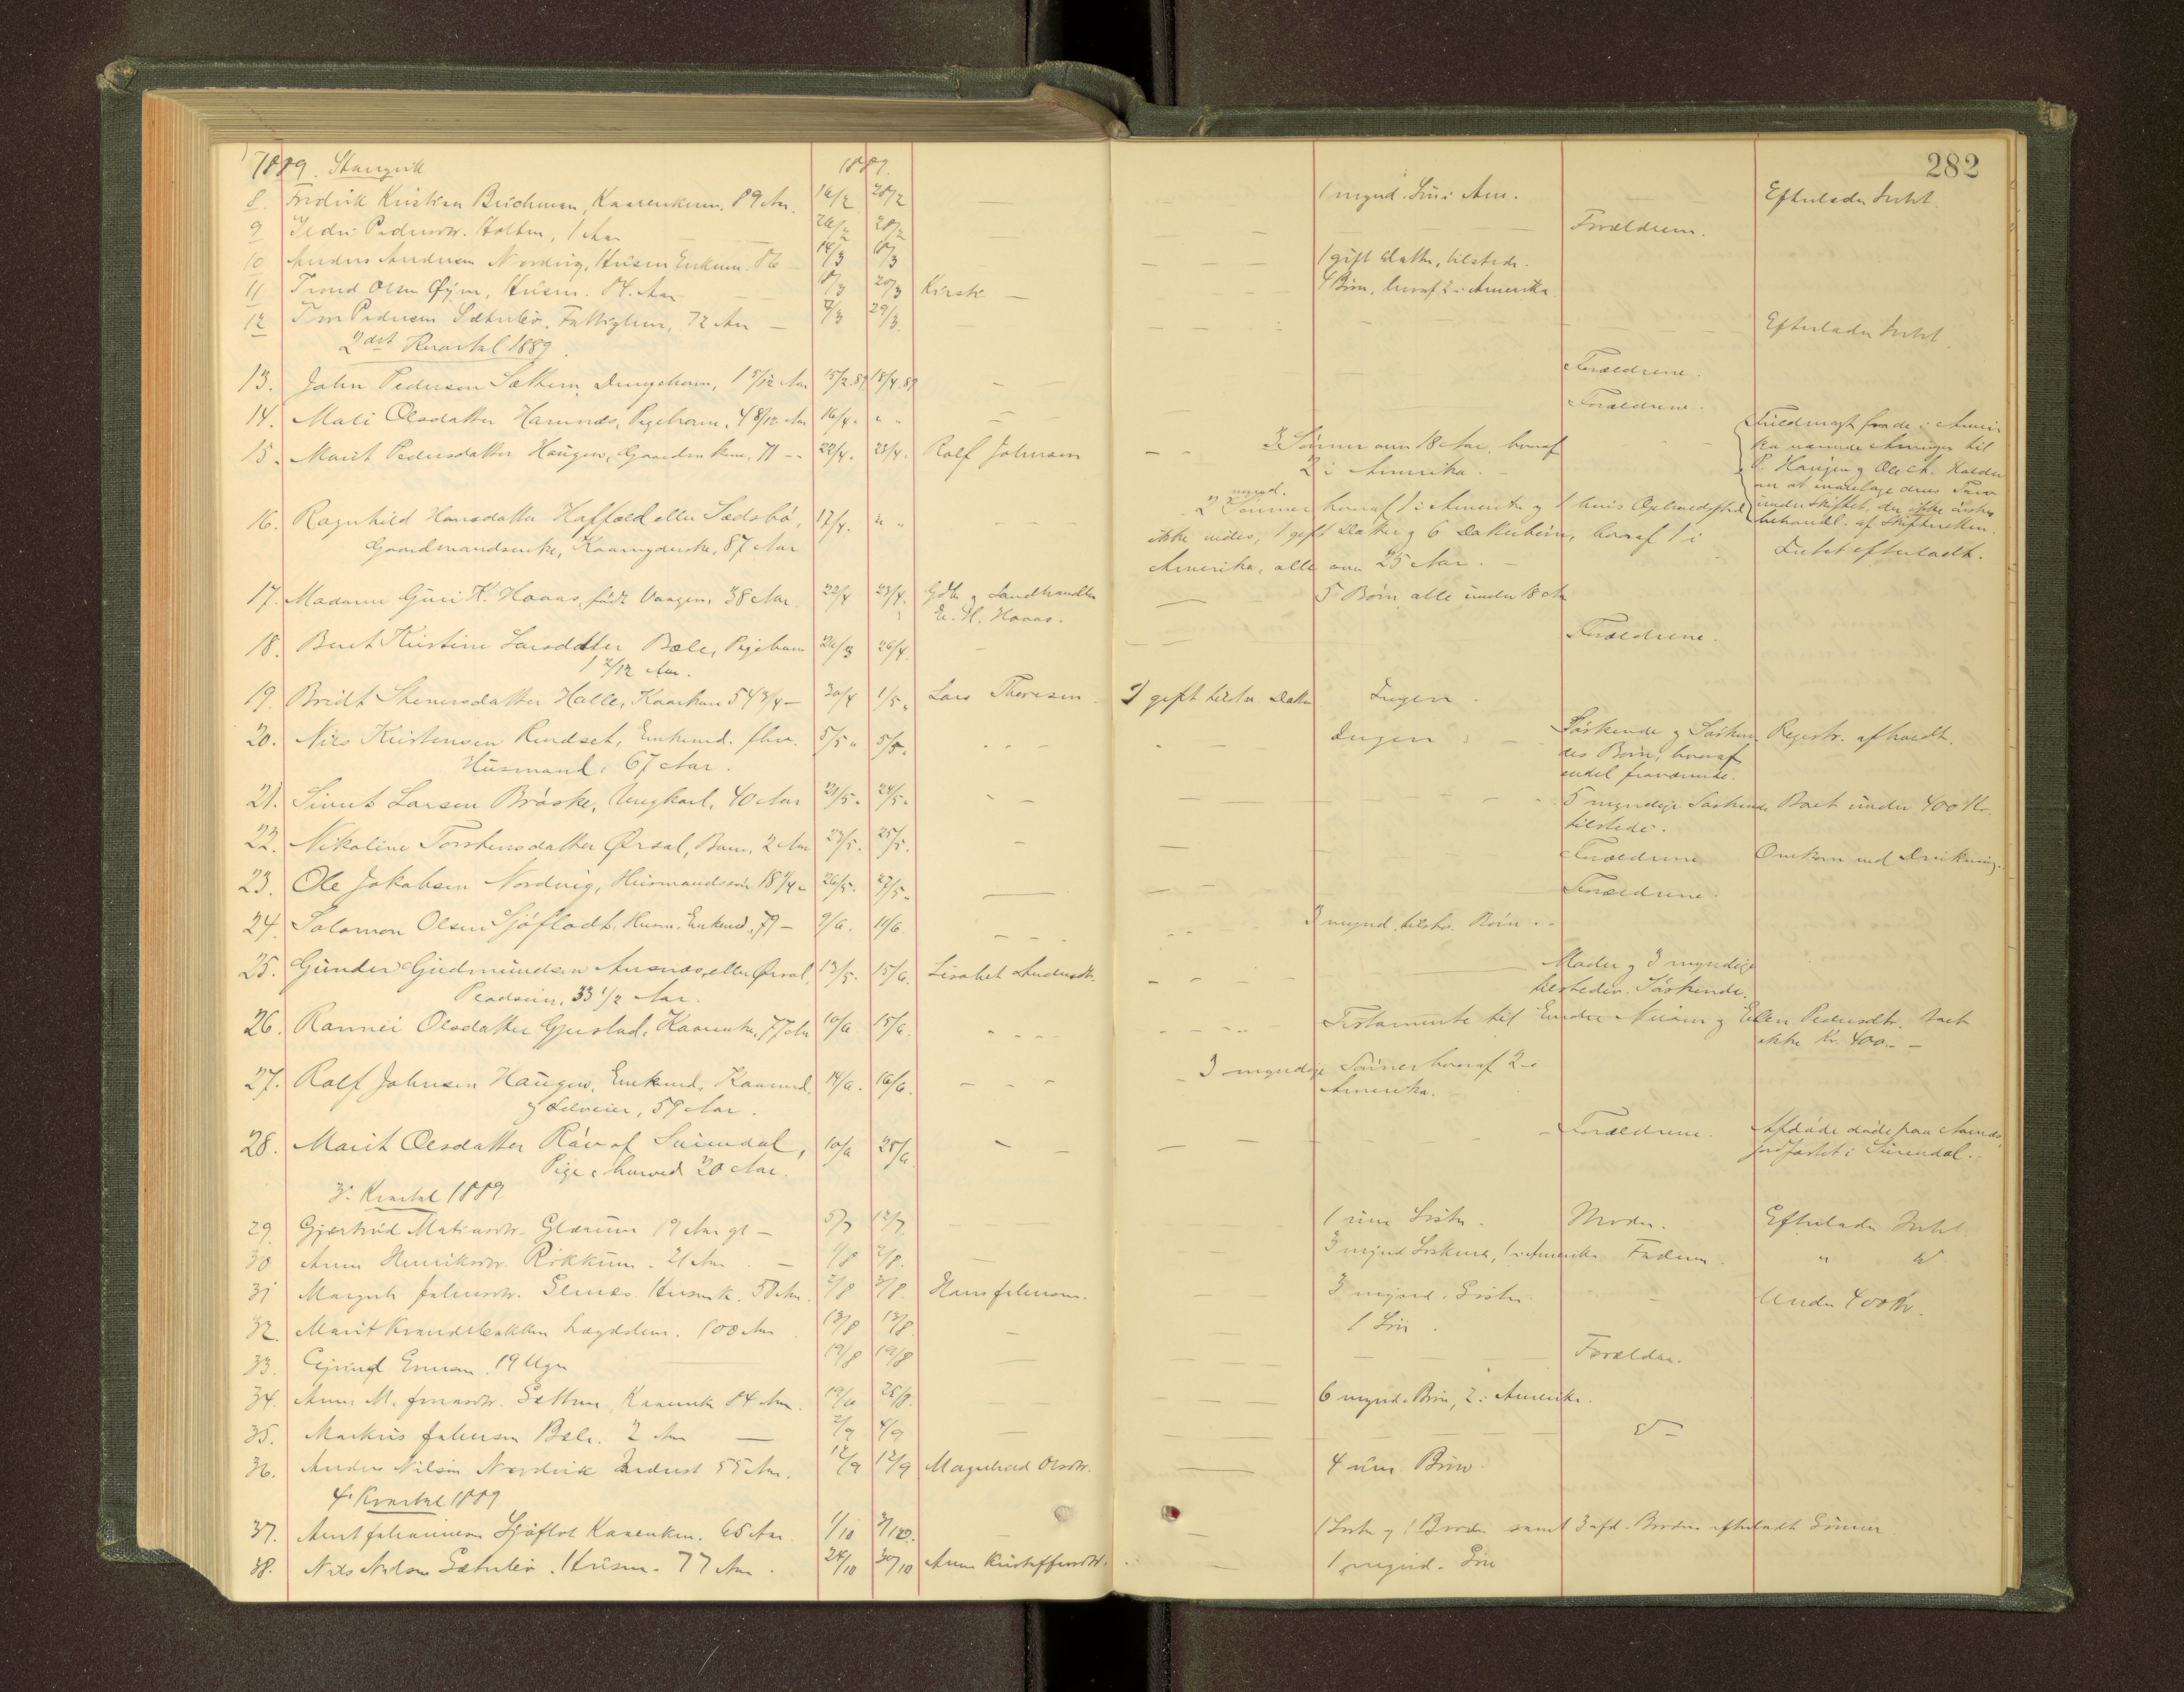 282
1889. Stangvik 1889.
8. Fredrik Kristian Buchman, Kaarenkem. 89 Aar. 16/2 28/2 1 mynd. Søn i Am. Efterlader Intet.
9 Peders. Holten, 1 Aar 28/2 Forældrene.
10 Anders Andersen Nordvig, Husm Enkem. 86 14/3 1 gift Datter, tilstede.
11 Trond Olsen Øijen, Husm. 84. Aar 20/3 Kirsti 4 Børn, hvoraf 2 i Amerika
12 Pedersen Sæterbø. Fattiglem, 72 Aar 29/3 Efterlader Intet.
2det Kvartal 1889.
13. John Pedersen Sæther, Drengebarn, 1 5/12 Aar 15/2.89 15/4.89 Forældrene.
14. Mali Olsdatter Hamnæs, Pigebarn, 4 8/12 Aar 16/4. " Forældrene.
15. Marit Pedersdatter Haugen, Gaardmkone, 71 22/4. 23/4. Rolf Johnsen 3 Sønner over 18 Aar, hvoraf
2 i Amerika.
Fuldmagt fra de i Ameri-
ka værende Arvinger til
P. Haugen og Ole A. Halden
om at varetage deres Tarv
under Skiftet, der ikke ønskes
behandl. af Skifteretten.
16. Ragnhild Hansdatter Haffæld eller Sædsbø, 17/4. " 2 mynd. Sønner hvoraf 1 i Amerika og 1 hvis Opholdssted
Gaardmandsenke, Kaarnyderske, 87 Aar ikke vides, 1 gift Datter og 6 Datterbørn, hvoraf 1 i
Amerika, alle over 25 Aar. Intet efterladt.
17. Madame Guri K. Haaas, født Vaagen, 38 Aar 22/4 23/4. Gdbr. og Landhandler 5 Børn alle under 18 Aar
E. H. Haaas.
18. Beret Kirstine Larsdatter Bæle, Pigebarn 26/3 26/4. Forældrene.
1 2/12 Aar.
19. Bridt Stenersdatter Halle, Kaarkone 54 3/4 - 30/4 1/5. Lars Thoresen 1 gift tilst. Datter Ingen.
20. Nils Kristensen Rendset, Enkemd. fhv. 5/5 " 5/5. Ingen Søskende og Søsken- Registr. afholdt.
Husmand, 67 Aar. des Børn, hvoraf
endel fraværende.
21. Sivert Larsen Brøske, Ungkarl, 40 Aar 21/5. 24/5. 5 myndige Søskende Boet under 400 Kr.
tilstede.
22. Nikoline Torstensdatter Ørsal, Barn, 2 Aar 23/5. 25/5. Forældrene Omkom ved Drukning.
23. Ole Jakobsen Nordvig, Husmandssøn 18 1/4 26/5. 27/5. Forældrene.
24. Salomon Olsen Sjøflodt, Husm. Enkemd, 79 - 9/6. 11/6. 3 mynd. tilst. Børn.
25. Gunder Gudmundsen Aasnæs eller Ørsal, 13/5. 15/6. Lisabet Andersdt. Moder og 3 myndige
Pladsein, 33 1/2 Aar. tilstedev. Søskende.
26. Rannei Olsdatter Gjeilad, Kaarenke, 77 Aar 10/6 15/6. Testamente til Endre og Ellen Pedersdtr. Boet
ikke Kr. 400.-
27. Rolf Johnsen Haugen, Enkemd. Kaarmd. 14/6. 16/6. 3 myndige Sønner hvoraf 2 i
og Selveier, 59 Aar. Amerika.
28. Marit Olsdatter Røv af Surendal, 10/6 25/6. Forældrene. Afdøde døde paa
Pige, henved 20 Aar. jordfæstet i Surendal.
3. Kvartal 1889
29. Gjertrud Matiasdtr. Glærum 19 Aar gl - 5/7 12/7. 1 um. Søster. Moder. Efterlader Intet
30 Anne Henriksdtr. Røkkum. 21 Aar - 1/8 2/8. 3 mynd Søskende, 1 i Amerika Faderen. " "
31 Margrete Johnsdtr. Husmk. 58 Aar. 2/8 3/8. Hans Johnsen. 3 mynd. Søstre. Under 400 Kr.
32. Marit Lægdslem. 100 Aar 13/8 13/8. 1 Søn.
33. Ejvind 19 Uger 19/8 19/8 Forældre.
34. Anne M. Kaarenke 84 Aar. 25/8. 6 mynd. Børn, 2 i Amerika.
35. Markus Johnsen Bæle. 2 Aar 2/9 4/9
36. Anders Nilsen Nordvik Inderst 55 Aar. 12/9 12/9 Magnhild Olsdtr. 4 um. Børn.
4. Kvartal 1889
37. Arnt Johannesen Sjøflot Kaarenkm. 65 Aar 1/10 1 Søster og 1 Broder samt 3 afd. Broders efterladte Sønner
38. Nils Nilsen Sæterbø. Husm. 77 Aar. 24/10 30/10 Anne Kristoffersdtr. 1 mynd. Søn